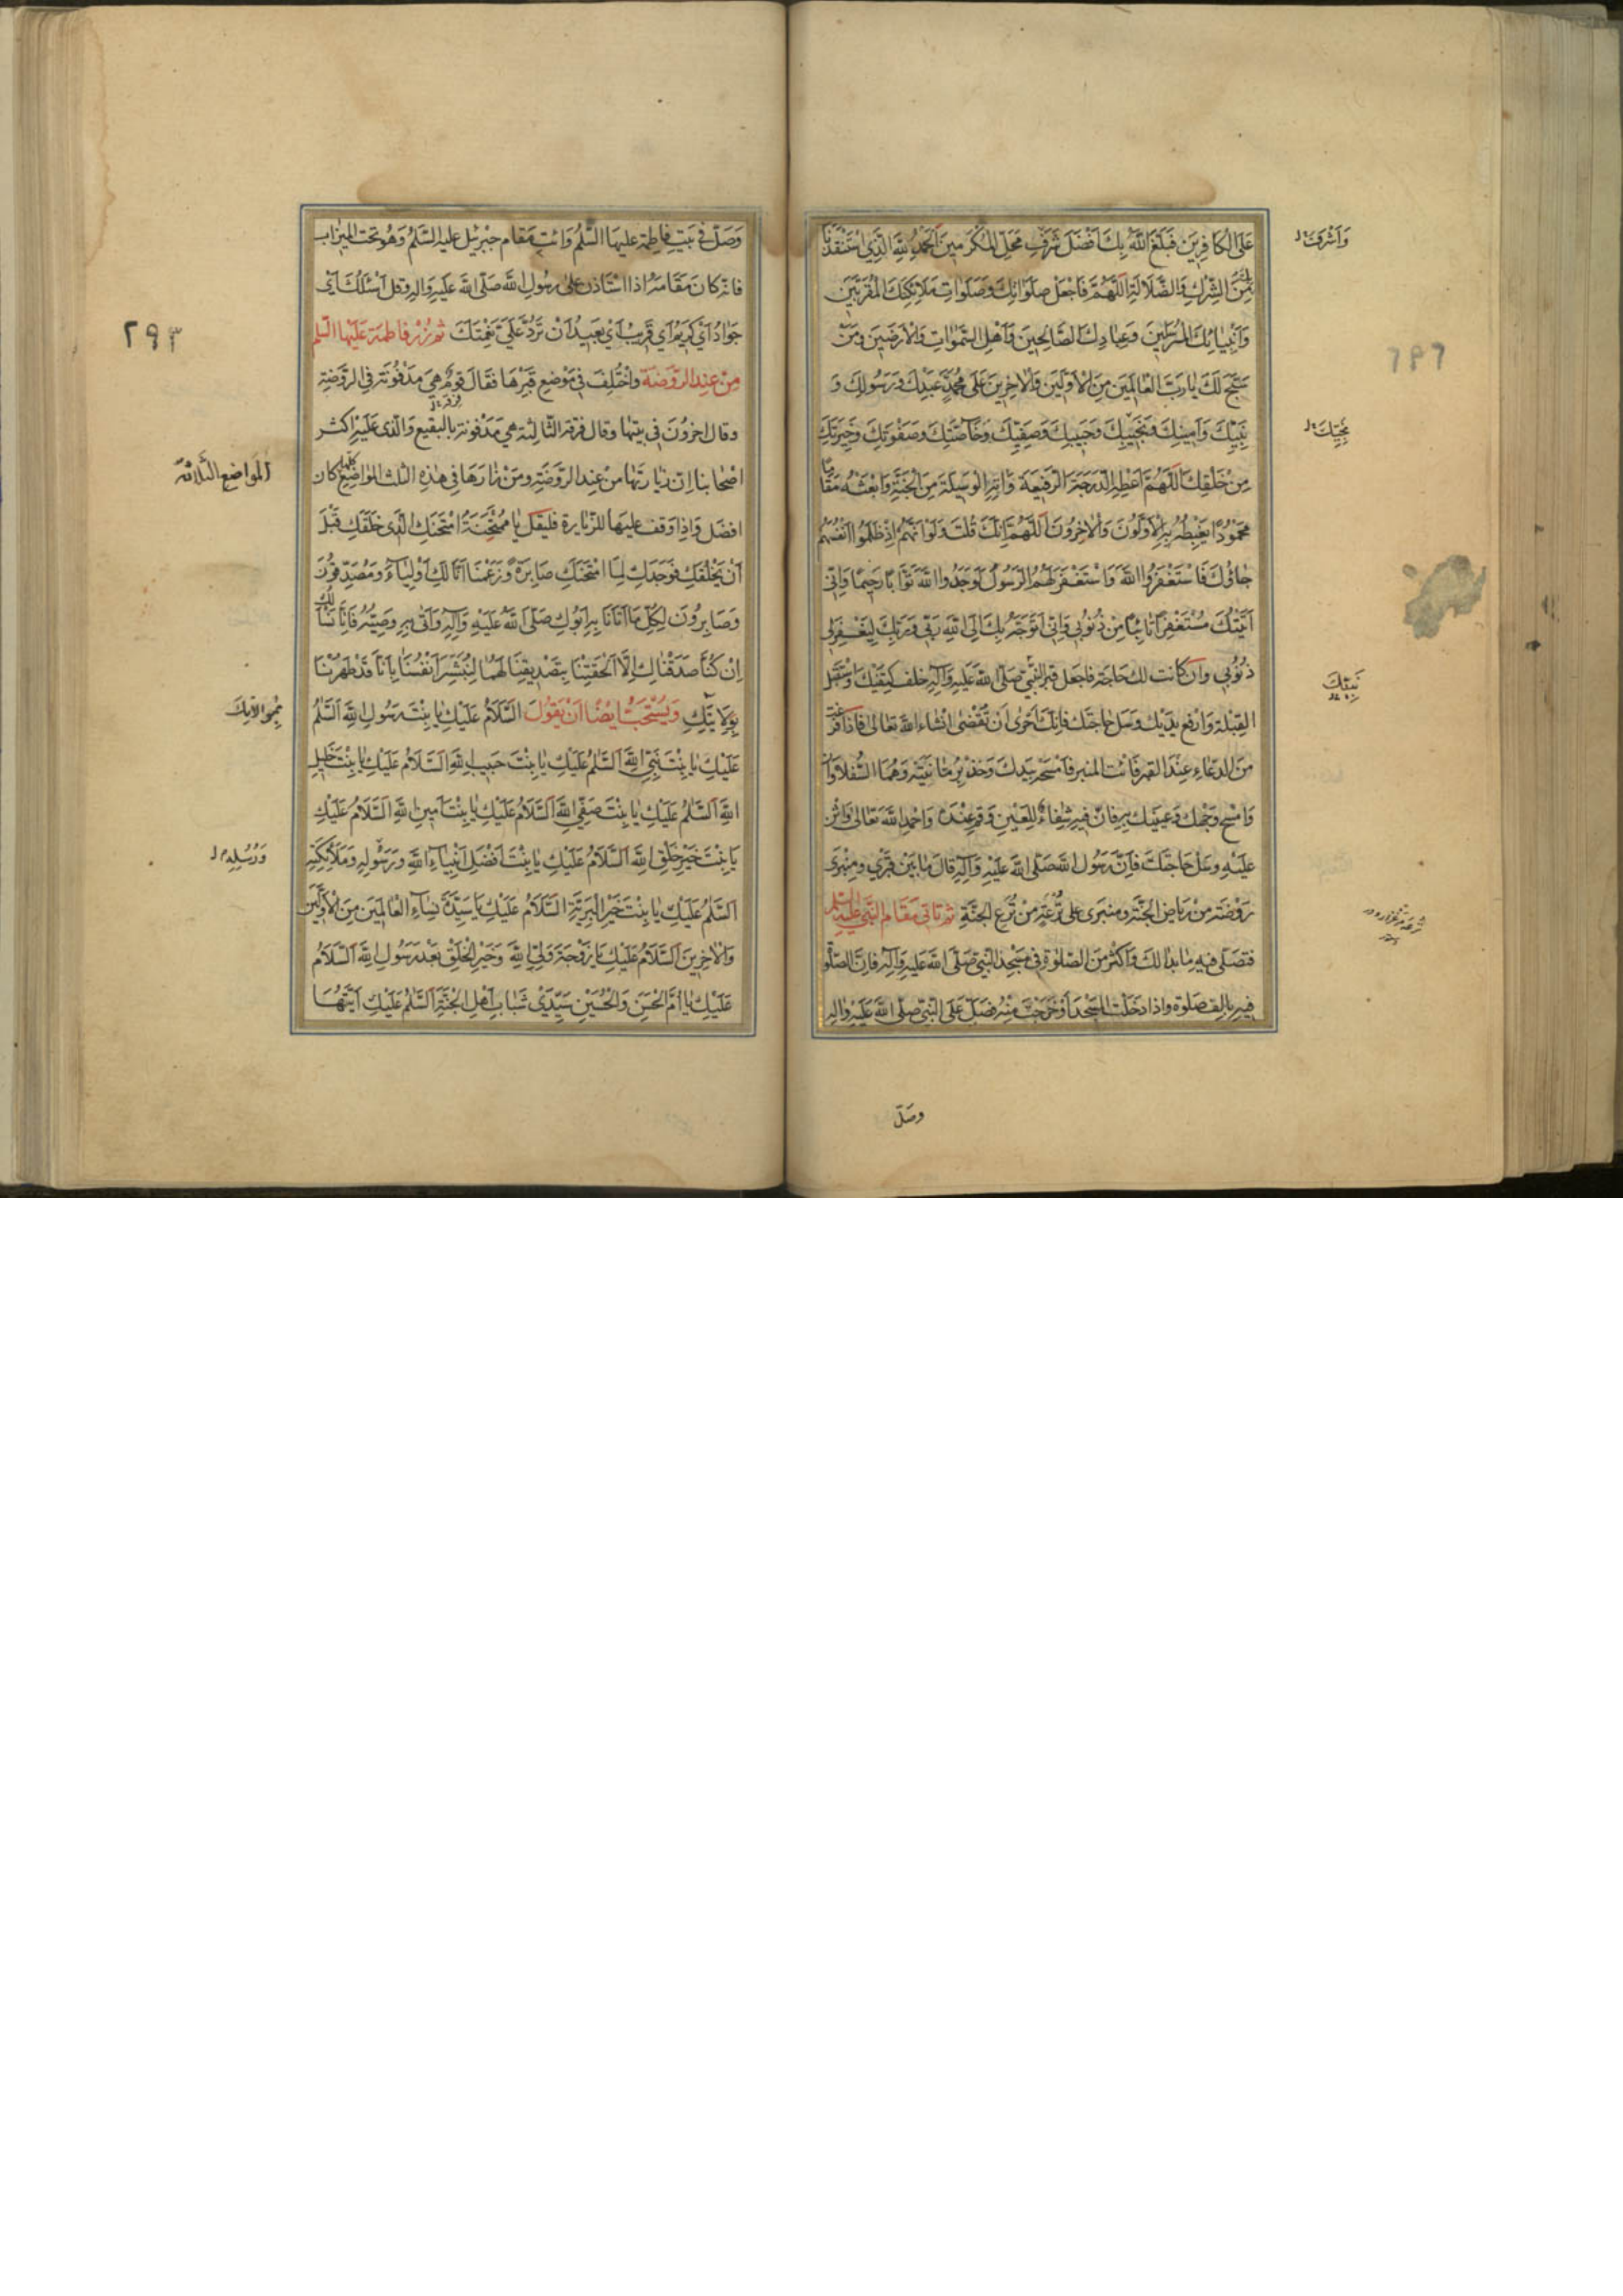 عَلَى الْكَافِرِينَ فَبَلَغَ اللّٰهُ بِكَ اَفْضَلَ شَرَفِ مَحَلِّ الْمُكَرَّمِينَ اَلْحَمْدُ لِلّٰهِ الَّذِى اسْتَنْقَذَنَا
مِنَ الشِّرْكِ وَالضَّلَالَةِ اَللّٰهُمَّ فَاجْعَلْ صَلَوَاتِكَ وَصَلَوَاتِ مَلَائِكَتِكَ الْمُقَرَّبِينَ
وَاَنْبِيَائِكَ الْمُرْسَلِينَ وَعِبَادِكَ الصَّالِحِينَ وَاَهْلِ السَّمٰوَاتِ وَالْاَرَضِينَ وَمَنْ
سَبَّحَ لَكَ يَا رَبَّ الْعَالَمِينَ مِنَ الْاَوَّلِينَ وَالْاٰخِرِينَ عَلَى مُحَمَّدٍ عَبْدِكَ وَرَسُولِكَ وَ
نَبِيِّكَ وَاَمِينِكَ وَنَجِيبِكَ وَحَبِيبِكَ وَصَفِيِّكَ وَخَاصَّتِكَ وَصَفْوَتِكَ وَخِيَرَتِكَ
مِنْ خَلْقِكَ اَللّٰهُمَّ اَعْطِهِ الدَّرَجَةَ الرَّفِيعَةَ وَاٰتِهِ الْوَسِيلَةَ مِنَ الْجَنَّةِ وَابْعَثْهُ مَقَامًا
مَحْمُودًا يَغْبِطُهُ بِهِ الْاَوَّلُونَ وَالْاٰخِرُونَ اَللّٰهُمَّ اِنَّكَ قُلْتَ وَلَوْ اَنَّهُمْ اِذْ ظَلَمُوا اَنْفُسَهُمْ
جَاؤُكَ فَاسْتَغْفَرُوا اللّٰهَ وَاسْتَغْفَرَ لَهُمُ الرَّسُولُ لَوَجَدُوا اللّٰهَ تَوَّابًا رَحِيمًا وَاِنِّى
اَتَيْتُكَ مُسْتَغْفِرًا تَائِبًا مِنْ ذُنُوبِى وَاِنِّى اَتَوَجَّهُ بِكَ اِلَى اللّٰهِ رَبِّى وَرَبِّكَ لِيَغْفِرَ لِى
ذُنُوبِى وان كانت لك حاجة فاجعل قبر النَّبِى صَلَّى اللّٰه عَلَيْهِ وَاٰلِهِ خلف كتفيك وَاسْتَقْبِل
القِبْلَة وَارفع يديك وَسَل حاجتك فانّك اَحْرٰى اَنْ تُقْضٰى اِنْشاء اللّٰه تعالى فاذا فرغت
مِنَ الدعَاء عِنْدَ القبر فَائت المنبر فَامسَحه بيدك وَخذ برمّانتيه وَهُمَا السُّفلاوان
وَامْسح وَجْهك وَعينيك به فانّ فيه شِفَاءً لِلعَيْنِ وَقم عِنْدَهُ وَاحمد اللّٰه تعالى وَاثن
عَلَيْهِ وسَل حَاجتك فَاِنَّ رَسُول اللّٰه صَلّى اللّٰه عَلَيْهِ وَاٰلِه قال مَا بَيْن قَبْرِى ومِنْبرى
رَوْضَة مِنْ رِيَاضِ الجنَّة ومنبرى على تُرْعَةٍ مِنْ تُرَعِ الجنَّةِ ثم تاتى مَقَام النَّبِى عليه السلم
فتصلى فيه ما بدا لك وَاكْثر مِنَ الصّلوة فى مَسْجِد النّبِى صَلّى اللّٰه عَليه وَاٰلِه فانّ الصّلوة
فيه بالف صَلوة واذا دَخَلت المسْجِد اَوْ خَرجتَ منه فَصَلّ عَلَى النَّبِى صلّى اللّٰه عَلَيْهِ وَاله
وصَلّ
وَاَشْرَفَ
نَجِيِّكَ
نَبِيِّكَ
وَصَلّ فى بَيْتِ فاطمة عليهَا السّلم وَائت مَقَام جبْرئيل عليه السّلم وَهُو تحت الميزاب
فانّه كانَ مَقَامه اذا استَاذن على رسُولِ اللّٰه صَلّى اللّٰه عَلَيْهِ وَالِه وقل اَسْئَلُكَ اَىْ
جَوَادُ اَىْ كَرِيمُ اَىْ قَرِيبُ اَىْ بَعِيدُ اَنْ تَرُدَّ عَلَىَّ نِعْمَتَكَ ثم زُرْ فاطمَة عَلَيْهَا السّلم
مِنْ عِند الرّوضَة واخْتُلِفَ فى مَوْضع قَبْرِهَا فقَالَ قَومٌ هِىَ مَدْفُونَة فى الرَّوْضَةِ
وقال اخرُونَ فى بيتها وقال فرقة الثَّالِثَة هى مَدفونة بالبقيع وَالّذى عَلَيْه اكثر
اصْحَابنا اِنّ زيارتها مِنْ عِند الرَّوضَةِ ومَنْ زارَهَا فى هٰذِه الثلث المواضِع كلّها كان
افضَل وَاِذا وَقف عليهَا للزّيارة فليَقل يَا مُمْتَحَنَةُ امْتَحَنَكِ الَّذِى خَلَقَكِ قَبْلَ
اَنْ يَخْلُقَكِ فَوَجَدَكِ لِمَا امْتَحَنَكِ صَابِرَةً وَزَعَمْنَا اَنَّا لَكِ اَوْلِيَاءُ وَمُصَدِّقُونَ
وَصَابِرُونَ لِكُلِّ مَا اَتَانَا بِهِ اَبُوكِ صَلَّى اللّٰهُ عَلَيْهِ وَاٰلِهِ وَاَتٰى بِهِ وَصِيُّهُ فَاِنَّا نَسْأَلُكِ
اِنْ كُنَّا صَدَّقْنَاكِ اِلَّا اَلْحَقْتِنَا بِتَصْدِيقِنَا لَهُمَا لِنُبَشِّرَ اَنْفُسَنَا بِاَنَّا قَدْ طَهُرْنَا
بِوَلَايَتِكِ وَيُسْتَحَبّ ايضًا اَنْ يَقولَ السَّلَامُ عَلَيْكِ يَا بِنْتَ رَسُولِ اللّٰهِ اَلسَّلٰمُ
عَلَيْكِ يَا بِنْتَ نَبِىِّ اللّٰهِ اَلسَّلٰمُ عَلَيْكِ يَا بِنْتَ حَبِيبِ اللّٰهِ اَلسَّلَامُ عَلَيْكِ يَا بِنْتَ خَلِيلِ
اللّٰهِ اَلسَّلٰمُ عَلَيْكِ يَا بِنْتَ صَفِىِّ اللّٰهِ اَلسَّلَامُ عَلَيْكِ يَا بِنْتَ اَمِينِ اللّٰهِ اَلسَّلَامُ عَلَيْكِ
يَا بِنْتَ خَيْرِ خَلْقِ اللّٰهِ اَلسَّلَامُ عَلَيْكِ يَا بِنْتَ اَفْضَلِ اَنْبِيَاءِ اللّٰهِ وَرَسُولِهِ وَمَلَائِكَتِهِ
اَلسَّلٰمُ عَلَيْكِ يَا بِنْتَ خَيْرِ الْبَرِيَّةِ السَّلَامُ عَلَيْكِ يَا سَيِّدَةَ نِسَاءِ الْعَالَمِينَ مِنَ الْاَوَّلِينَ
وَالْاٰخِرِينَ اَلسَّلَامُ عَلَيْكِ يَا زَوْجَةَ وَلِىِّ اللّٰهِ وَخَيْرِ الْخَلْقِ بَعْدَ رَسُولِ اللّٰهِ اَلسَّلَامُ
عَلَيْكِ يَا اُمَّ الْحَسَنِ وَالْحُسَيْنِ سَيِّدَىْ شَبَابِ اَهْلِ الْجَنَّةِ اَلسَّلٰمُ عَلَيْكِ اَيَّتُهَا
٢٩٣
المَوَاضع الثَّلاثة
وَرُسُلِهِ